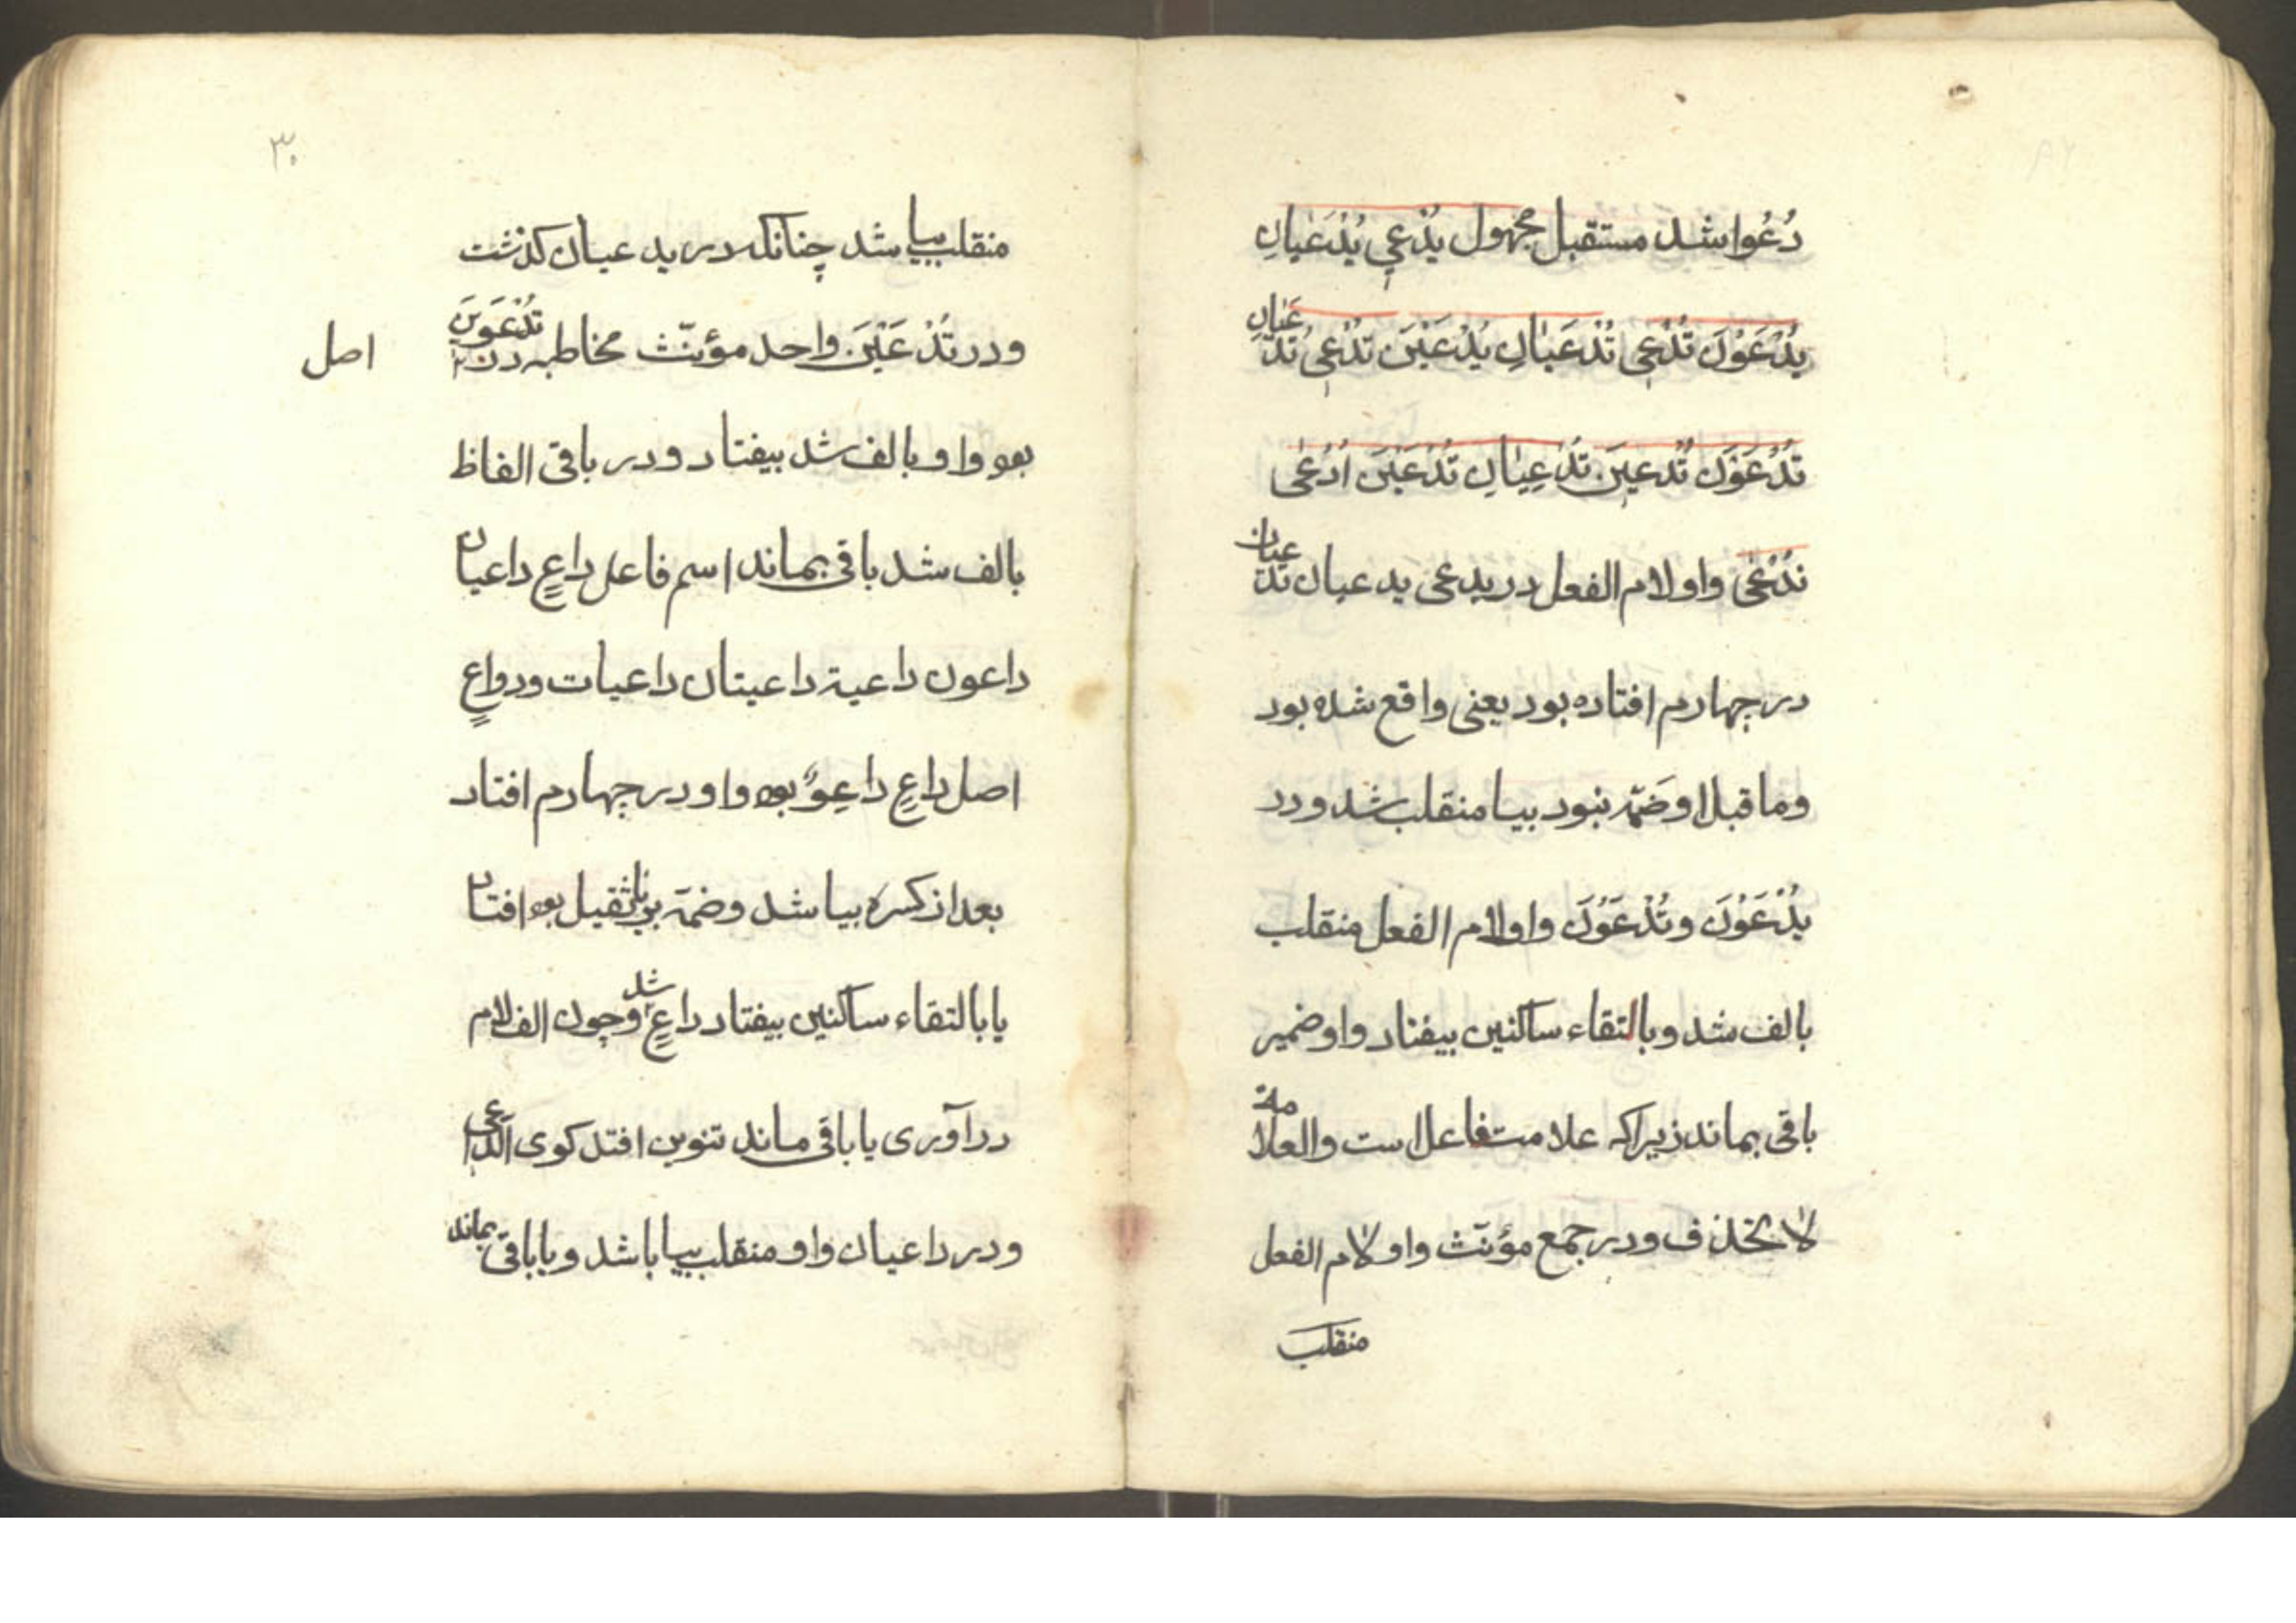 دُعُوا شد مستقبل مجهول یُدْعی یُدْعَیَانِ
یُدْعَوْنَ تُدْعی تُدْعَیَانِ یُدْعَیْنَ تُدْعی تُدْعَیَانِ
تُدْعَوْنَ تُدْعِینَ تُدْعِیَانِ تُدْعَیْنَ اُدْعٰی
نُدْعٰی واو لام الفعل در یدعی یدعیان تدعیان
در چهارم افتاده بود یعنی واقع شده بود
وما قبل او ضَمّه نبود بیا منقلب شد ودر
یُدْعَوْنَ وتُدْعَوْنَ واو لام الفعل منقلب
بالف شد وبالتقاء ساکنین بیفتاد واو ضمیر
باقی بماند زیراکه علامت فاعل است والعلامة
لا تحذف ودر جمع مؤنّث واو لام الفعل
منقلب
۳۰
منقلب بیا شد چنانکه در یدعیان کذشت
ودر تُدْعَیْنَ واحد مؤنّث مخاطبه تُدْعَوِینَ
اصل
بوه واو بالف شد بیفتاد ودر باقی الفاظ
بالف شد باقی بماند اسم فاعل داعٍ داعیان
داعون داعیة داعیتان داعیات ودواعٍ
اصل داعٍ داعِوٌ بوه واو در چهارم افتاد
بعد از کسره بیا شد وضمّه بریا ثقیل بوه افتاد
یا بالتقاء ساکنین بیفتاد داعٍ شد وچون الف لام
درآوری یا باقی ماند تنوین افتد کوی الدّاعی
ودر داعیان واو منقلب بیا باشد ویا باقی بماند